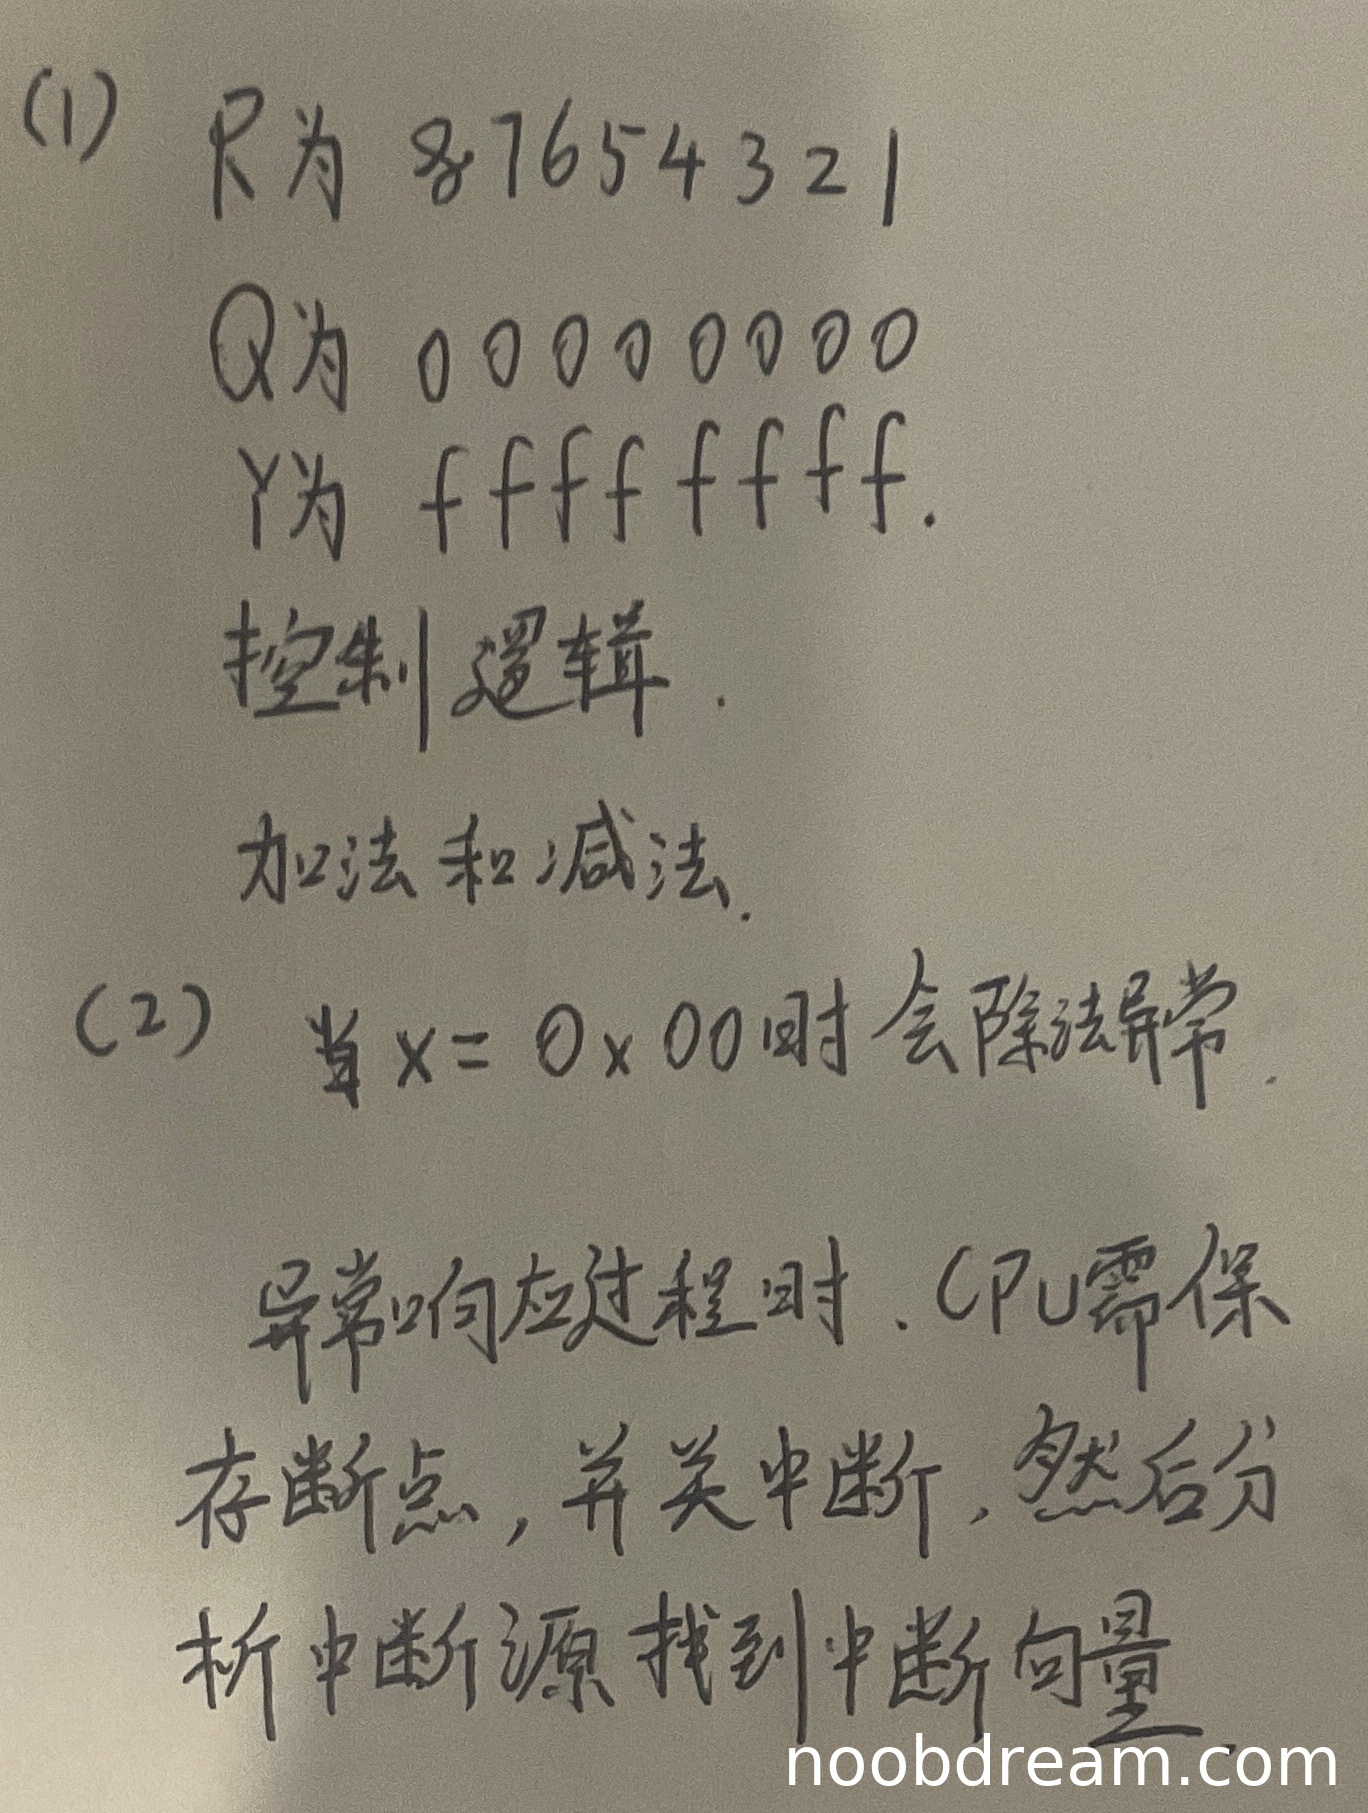 (1) R为 87654321
Q为 00000000
Y为 ffffffff.
控制逻辑.
加法和减法.
(2) 当x=0x00时会除法异常.
异常响应过程时.CPU需保
存断点,并关中断,然后分
析中断源找到中断向量.
noobdream.com